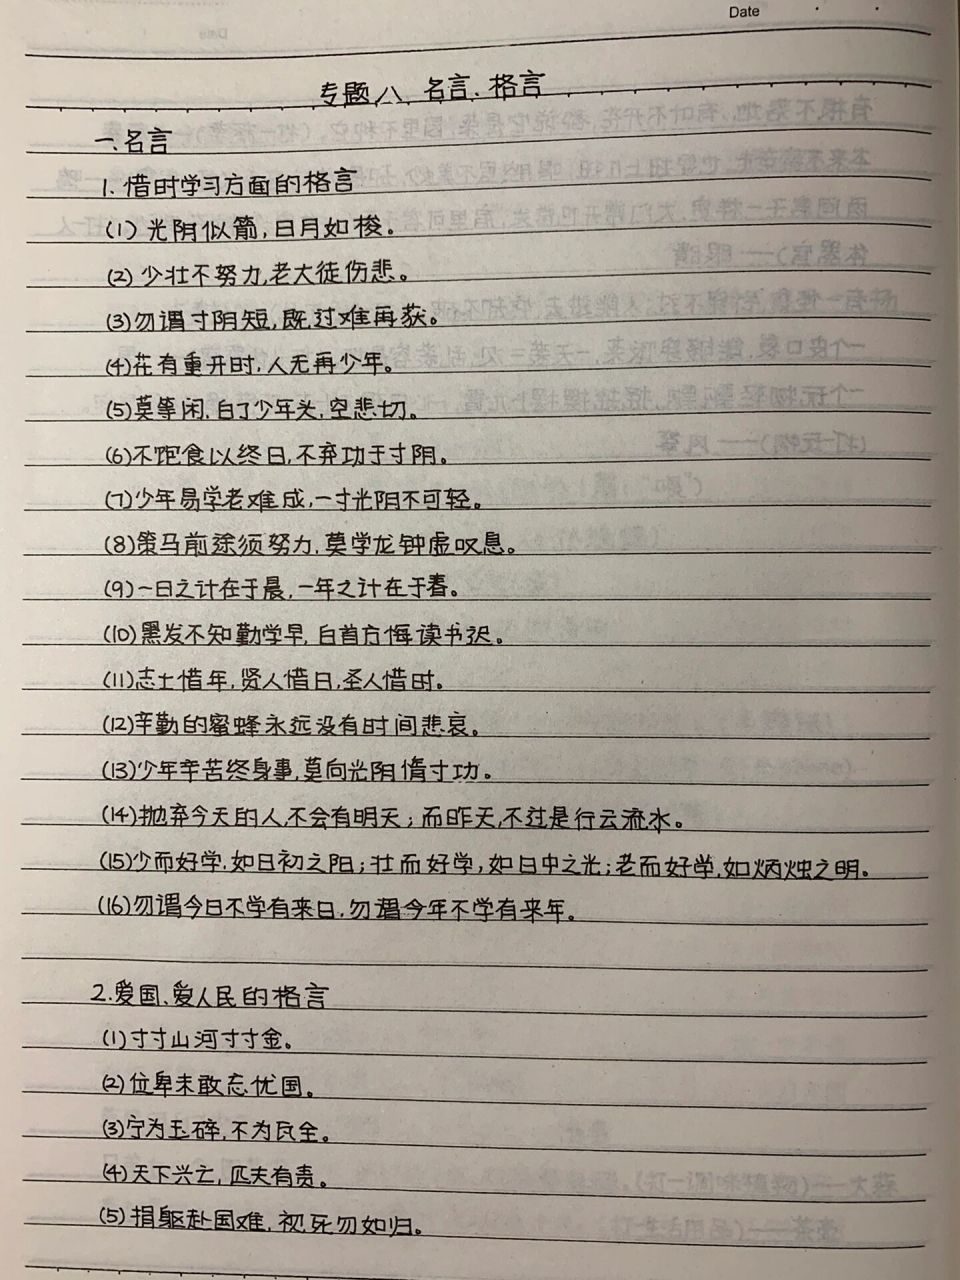 Date
专题八 名言、格言
一、名言
1. 惜时学习方面的格言
(1) 光阴似箭,日月如梭。
(2) 少壮不努力,老大徒伤悲。
(3)勿谓寸阴短,既过难再获。
(4)花有重开时,人无再少年。
(5)莫等闲,白了少年头,空悲切。
(6)不饱食以终日,不弃功于寸阴。
(7)少年易学老难成,一寸光阴不可轻。
(8)策马前途须努力,莫学龙钟虚叹息。
(9)一日之计在于晨,一年之计在于春。
(10)黑发不知勤学早,白首方悔读书迟。
(11)志士惜年,贤人惜日,圣人惜时。
(12)辛勤的蜜蜂永远没有时间悲哀。
(13)少年辛苦终身事,莫向光阴惰寸功。
(14)抛弃今天的人,不会有明天;而昨天,不过是行云流水。
(15)少而好学,如日初之阳;壮而好学,如日中之光;老而好学,如炳烛之明。
(16)勿谓今日不学有来日,勿谓今年不学有来年。
2.爱国、爱人民的格言
(1)寸寸山河寸寸金。
(2)位卑未敢忘忧国。
(3)宁为玉碎,不为瓦全。
(4)天下兴亡,匹夫有责。
(5)捐躯赴国难,视死勿如归。